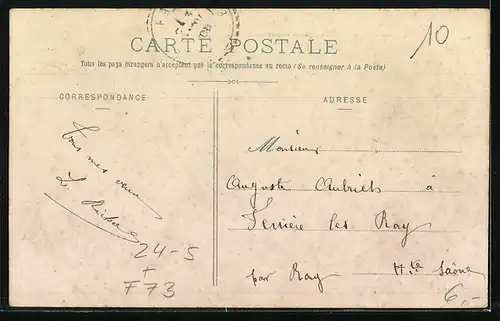 10
CARTE POSTALE
Tous les pays étrangers n'acceptent pas la correspondance au recto (Se renseigner à la Poste)
CORRESPONDANCE
ADRESSE
Tous mes vœux
24-5
+
F73
Monsieur
Auguste à
Ferrière les Ray
par Ray Hte Saône
6,-